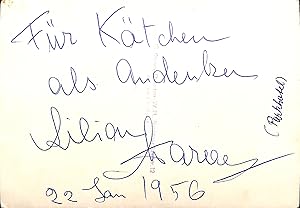 Für Kätchen
als Andenken
Lilian Harvey
22 Jan 1956
(Parkhotel)